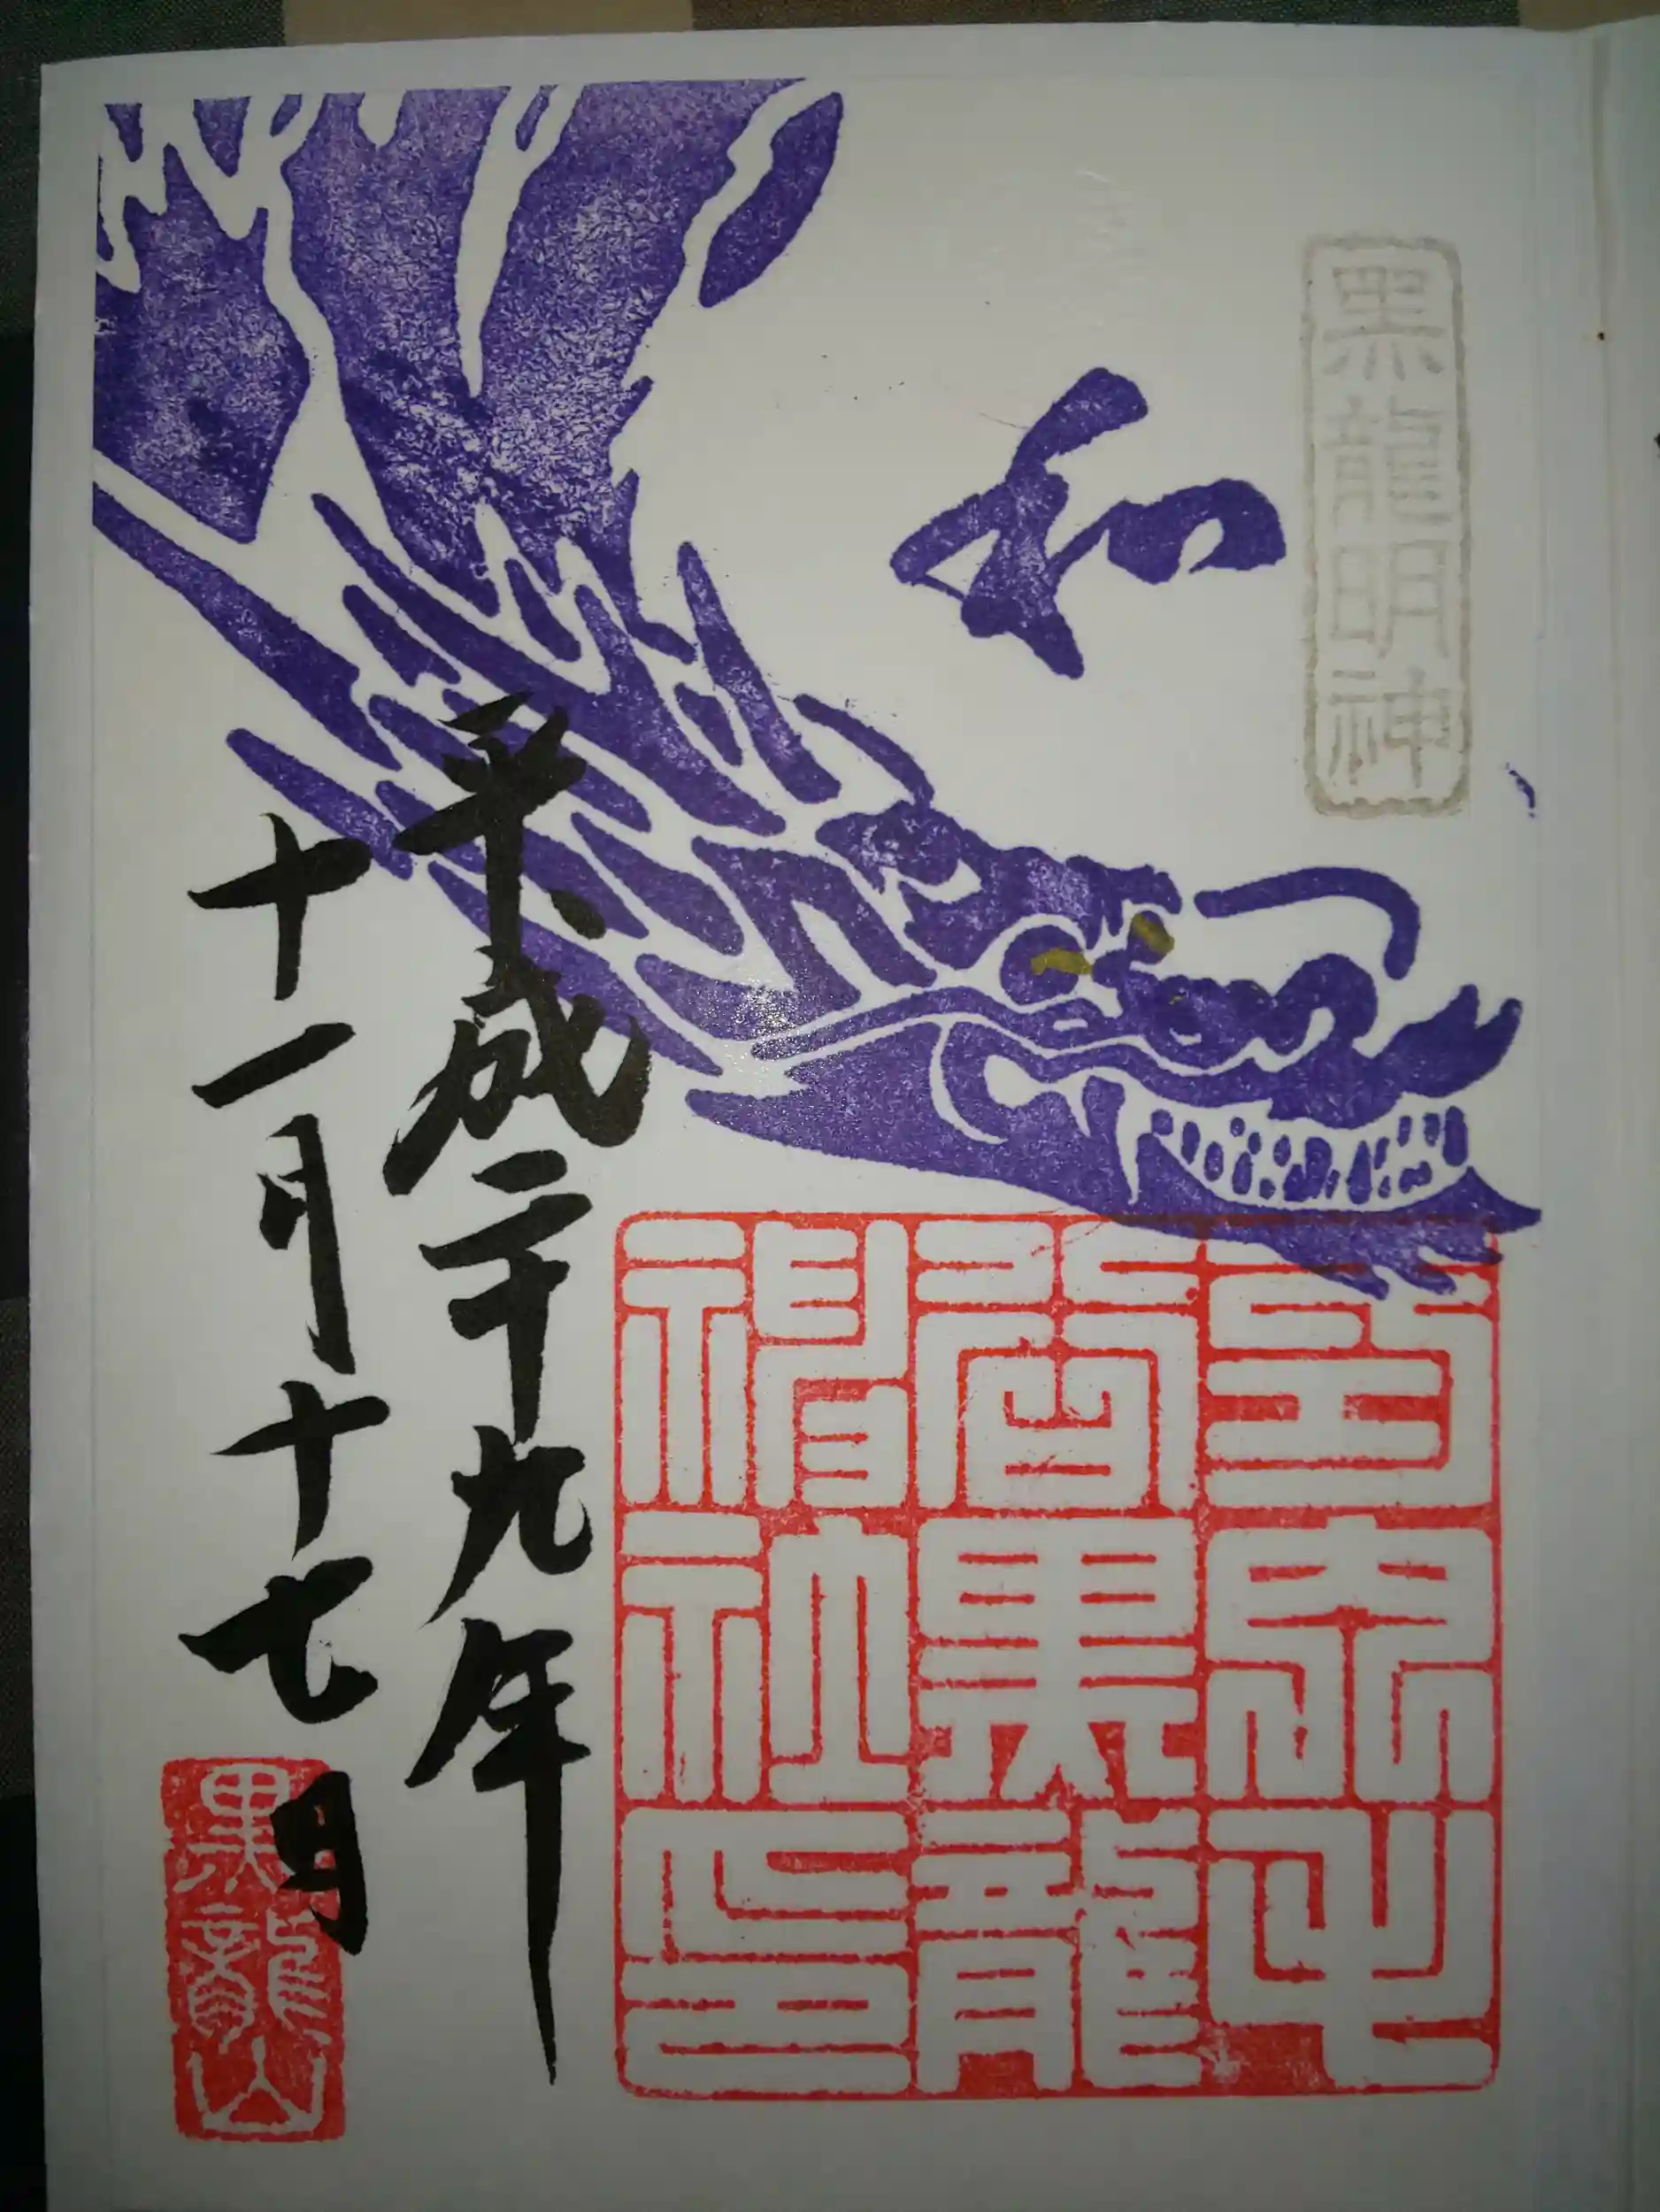 黒龍明神
和
黒龍
社印
平成二十九年
十一月十七日
黒龍山